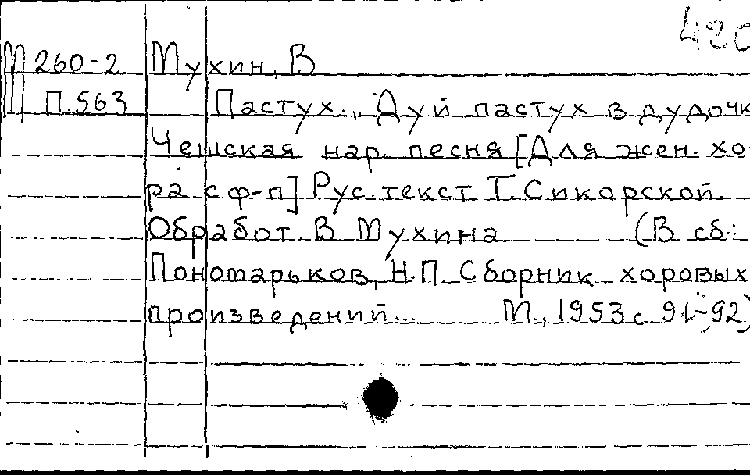 420
М 260-2 Мухин, В
П.563 Пастух. „Дуй пастух в дудочк
Чешская нар. песня [Для жен. хо-
ра с ф-п] Рус. текст Т. Сикорской.
Обработ. В Мухина (В сб.:
Пономарьков, Н.П. Сборник хоровых
произведений. М., 1953 с. 91-92)